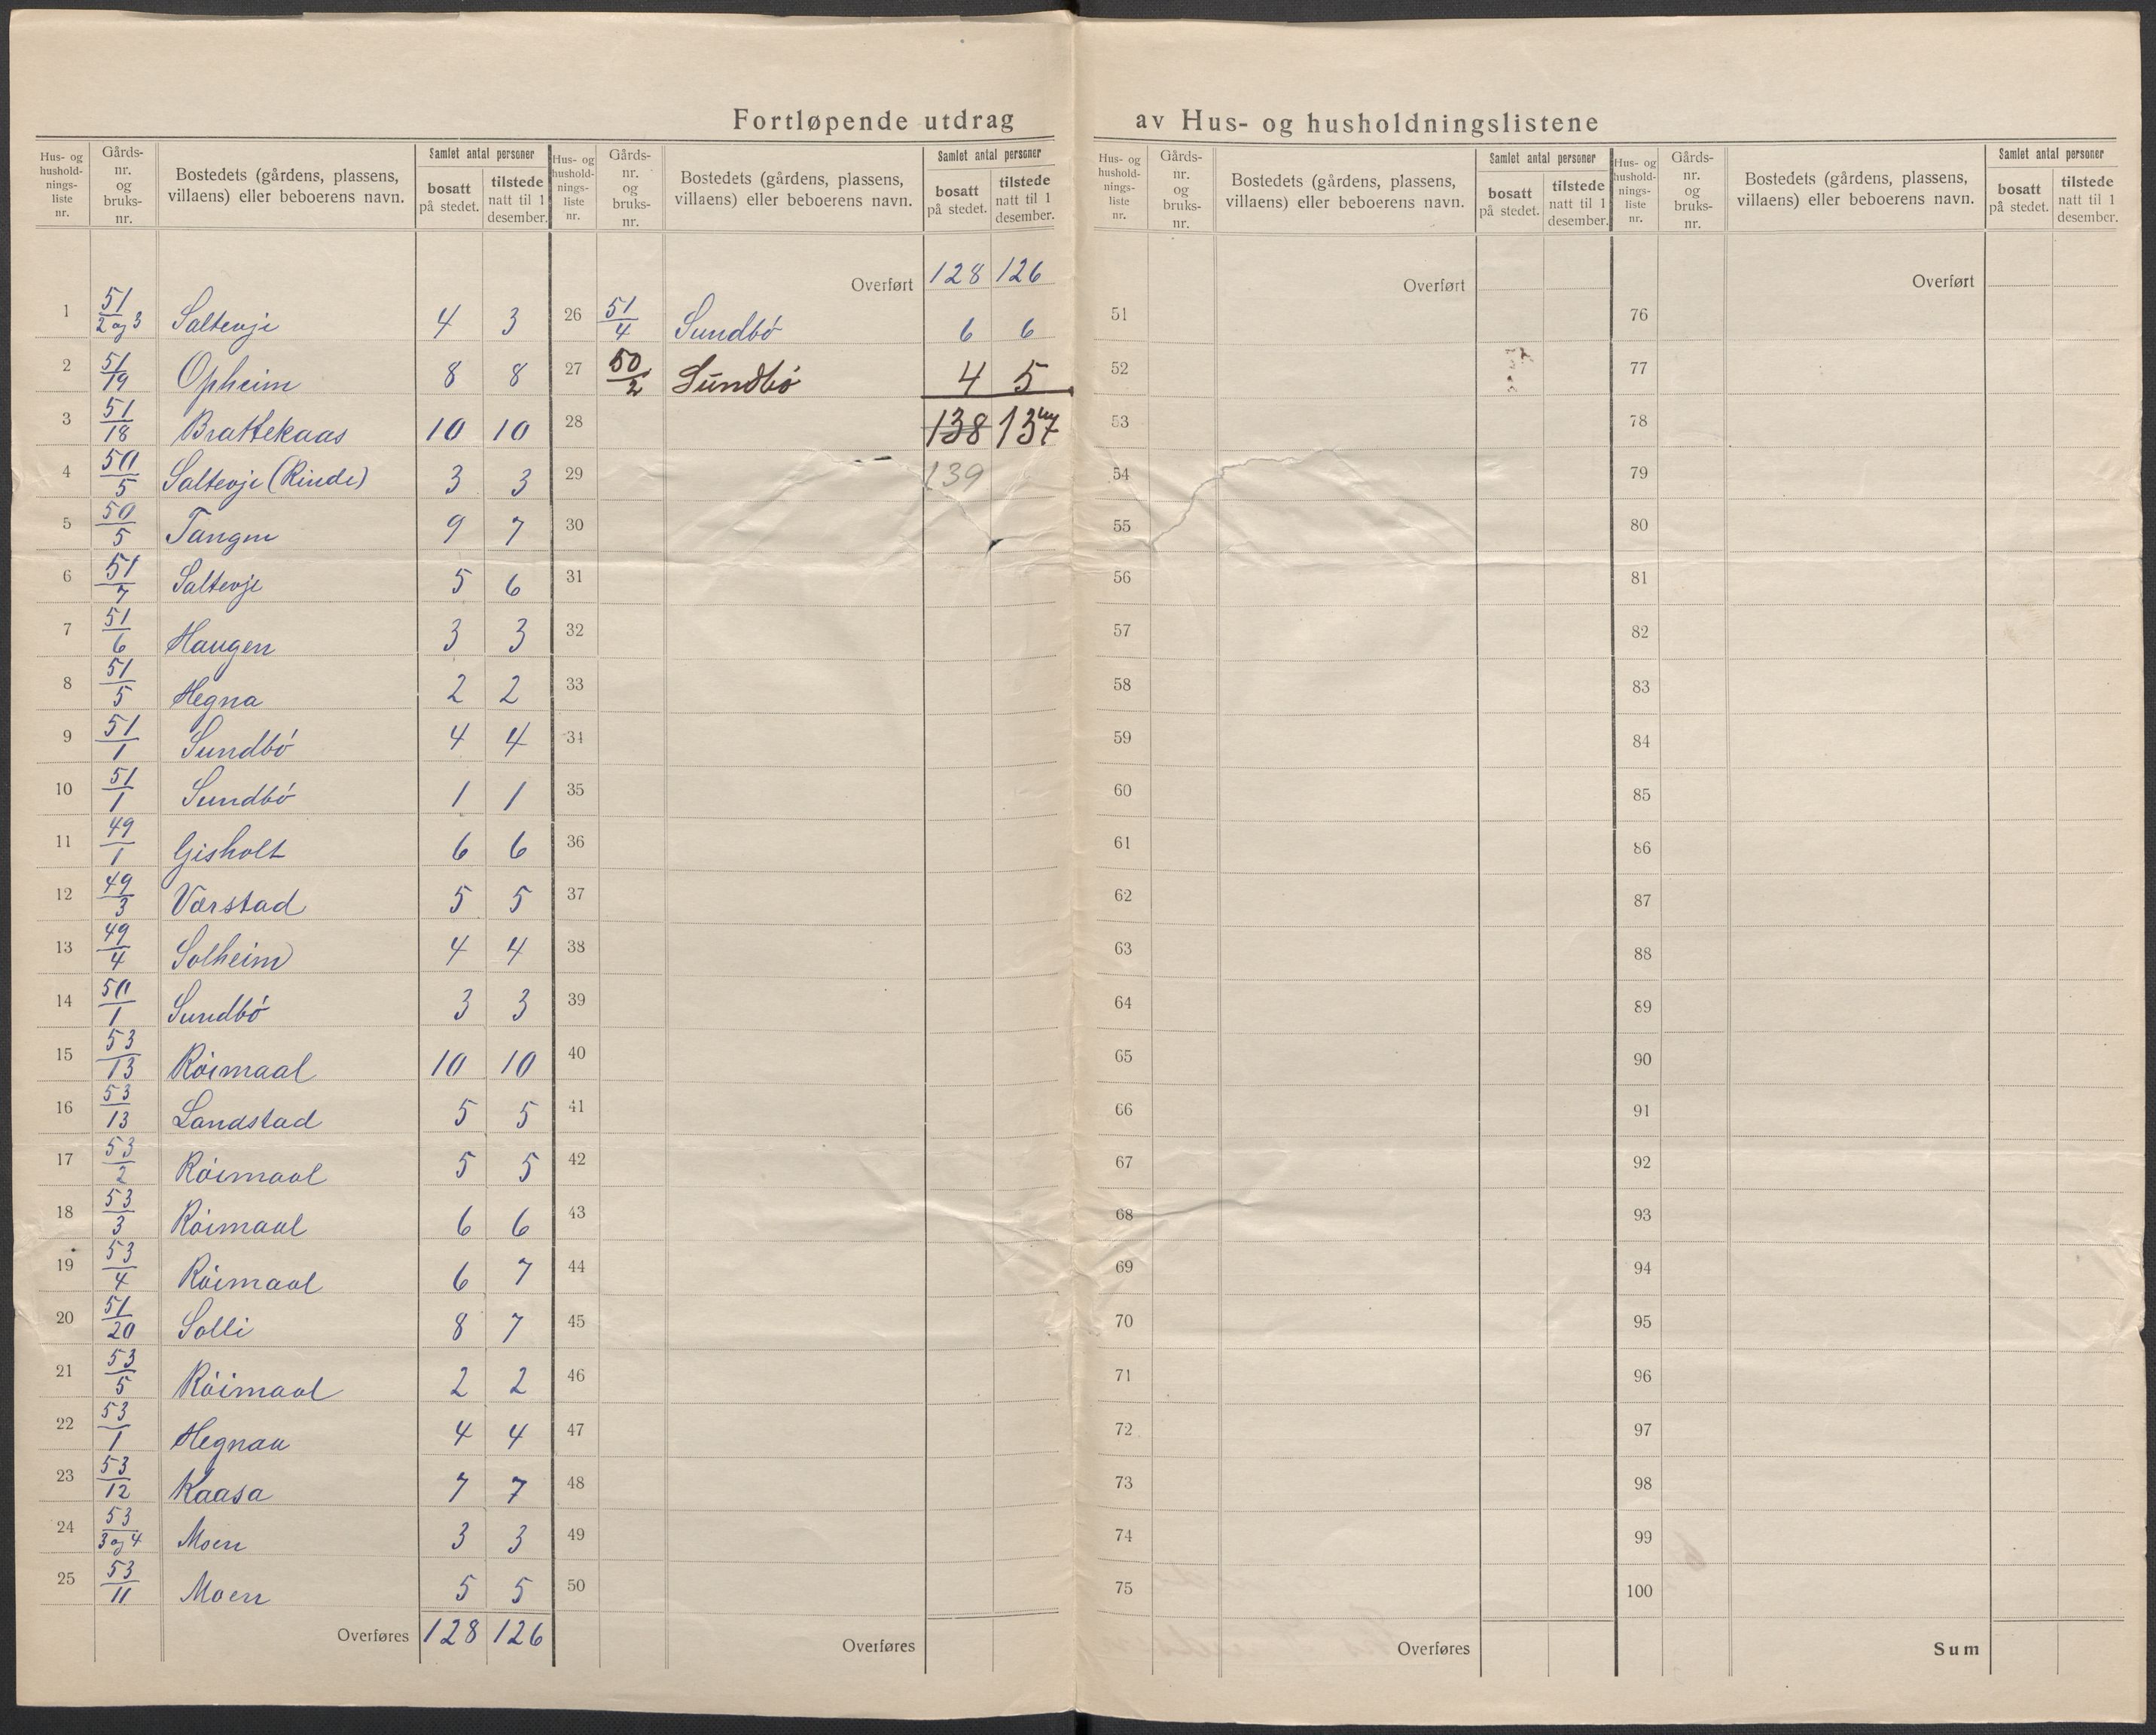 Fortløpende utdrag av Hus- og husholdningslistene
Hus- og hushold-nings-liste nr. | Gårds-nr. og bruks-nr. | Bostedets (gårdens, plassens, villaens) eller beboerens navn. | Samlet antal personer | bosatt på stedet. | tilstede natt til 1 desember.
1 51/2 og 3 Saltevje 4 3
2 51/19 Opheim 8 8
3 51/18 Brattekaas 10 10
4 50/5 Saltevje (Rinde) 3 3
5 50/5 Tangen 9 7
6 51/7 Saltevje 5 6
7 51/6 Haugen 3 3
8 51/5 Hegna 2 2
9 51/1 Sundbö 4 4
10 51/1 Sundbö 1 1
11 49/1 Gisholt 6 6
12 49/3 Værstad 5 5
13 49/4 Solheim 4 4
14 50/1 Sundbö 3 3
15 53/13 Röimaal 10 10
16 53/13 Landstad 5 5
17 53/2 Röimaal 5 5
18 53/3 Röimaal 6 6
19 53/4 Röimaal 6 7
20 51/20 Solli 8 7
21 53/5 Röimaal 2 2
22 53/1 Hegnau 4 4
23 53/12 Kaasa 7 7
24 53/3 og 4 Moen 3 3
25 53/11 Moen 5 5
Overføres 128 126
Hus- og hushold-nings-liste nr. | Gårds-nr. og bruks-nr. | Bostedets (gårdens, plassens, villaens) eller beboerens navn. | Samlet antal personer | bosatt på stedet. | tilstede natt til 1 desember.
Overført 128 126
26 51/4 Sundbö 6 6
27 50/2 Sundbö 4 5
28 138 137
29 139
30
31
32
33
34
35
36
37
38
39
40
41
42
43
44
45
46
47
48
49
50
Overføres
Hus- og hushold-nings-liste nr. | Gårds-nr. og bruks-nr. | Bostedets (gårdens, plassens, villaens) eller beboerens navn. | Samlet antal personer | bosatt på stedet. | tilstede natt til 1 desember.
Overført
51
52
53
54
55
56
57
58
59
60
61
62
63
64
65
66
67
68
69
70
71
72
73
74
75
Overføres
Hus- og hushold-nings-liste nr. | Gårds-nr. og bruks-nr. | Bostedets (gårdens, plassens, villaens) eller beboerens navn. | Samlet antal personer | bosatt på stedet. | tilstede natt til 1 desember.
Overført
76
77
78
79
80
81
82
83
84
85
86
87
88
89
90
91
92
93
94
95
96
97
98
99
100
Sum